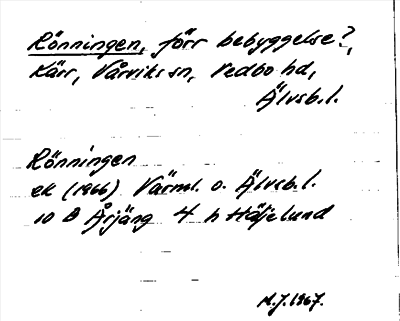 Rönningen, förr bebyggelse?,
Kärr, Vårviks sn, Vedbo hd,
Älvsb.l.
Rönningen
ek (1966) Värml. o. Älvsb.l.
10 B Årjäng 4 h Häljelund
M.J. 1967.